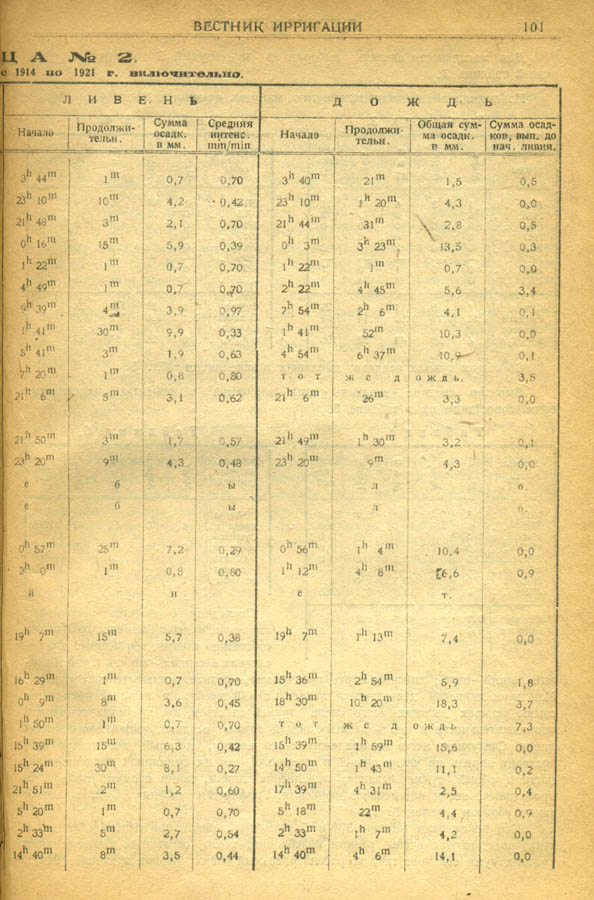 ВЕСТНИК ИРРИГАЦИИ 101
ЦА № 2.
с 1914 по 1921 г. включительно.
ЛИВЕНЬ ДОЖДЬ
Начало Продолжи-тельн. Сумма осадк. в мм. Средняя интенс. mm/min Начало Продолжи-тельн. Общая сум-ма осадк. в мм. Сумма осад-ков, вып. до нач. ливня.
3h 44m 1m 0,7 0,70 3h 40m 21m 1,5 0,5
23h 10m 10m 4,2 0,42 23h 10m 1h 20m 4,3 0,0
21h 48m 3m 2,1 0,70 21h 44m 31m 2,8 0,5
0h 16m 15m 5,9 0,39 0h 3m 3h 23m 13,5 0,3
1h 22m 1m 0,7 0,70 1h 22m 1m 0,7 0,0
4h 49m 1m 0,7 0,70 2h 22m 4h 45m 5,6 3,4
39m 4m 3,9 0,97 7h 54m 2h 6m 4,1 0,1
1h 41m 30m 9,9 0,33 1h 41m 52m 10,3 0,0
5h 41m 3m 1,9 0,63 4h 54m 6h 37m 10,9 0,1
7h 20m 1m 0,8 0,80 тот же дождь. 3,5
21h 6m 5m 3,1 0,62 21h 6m 26m 3,3 0,0
21h 50m 3m 1,7 0,57 21h 49m 1h 30m 3,2 0,1
23h 20m 9m 4,3 0,48 23h 20m 9m 4,3 0,0
е б ы л о.
е б ы л о.
0h 57m 25m 7,2 0,29 0h 56m 1h 4m 10,4 0,0
2h 0m 1m 0,8 0,80 1h 12m 4h 8m 6,6 0,9
й н е т.
19h 7m 15m 5,7 0,38 19h 7m 1h 13m 7,4 0,0
16h 29m 1m 0,7 0,70 15h 36m 2h 54m 5,9 1,8
0h 9m 8m 3,6 0,45 18h 30m 10h 20m 18,3 3,7
1h 50m 1m 0,7 0,70 тот же дождь 7,3
15h 39m 15m 6,3 0,42 15h 39m 1h 59m 15,6 0,0
15h 24m 30m 8,1 0,27 14h 50m 1h 43m 11,1 0,2
21h 51m 2m 1,2 0,60 17h 39m 4h 31m 2,5 0,4
5h 20m 1m 0,7 0,70 5h 18m 22m 4,4 0,9
2h 33m 5m 2,7 0,54 2h 33m 1h 7m 4,2 0,0
14h 40m 8m 3,5 0,44 14h 40m 4h 6m 14,1 0,0